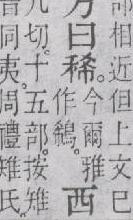 部相近但上文巳
方曰鵗
今爾雅
作鵗
西
九切十五部按雉
同夷周禮雉氏